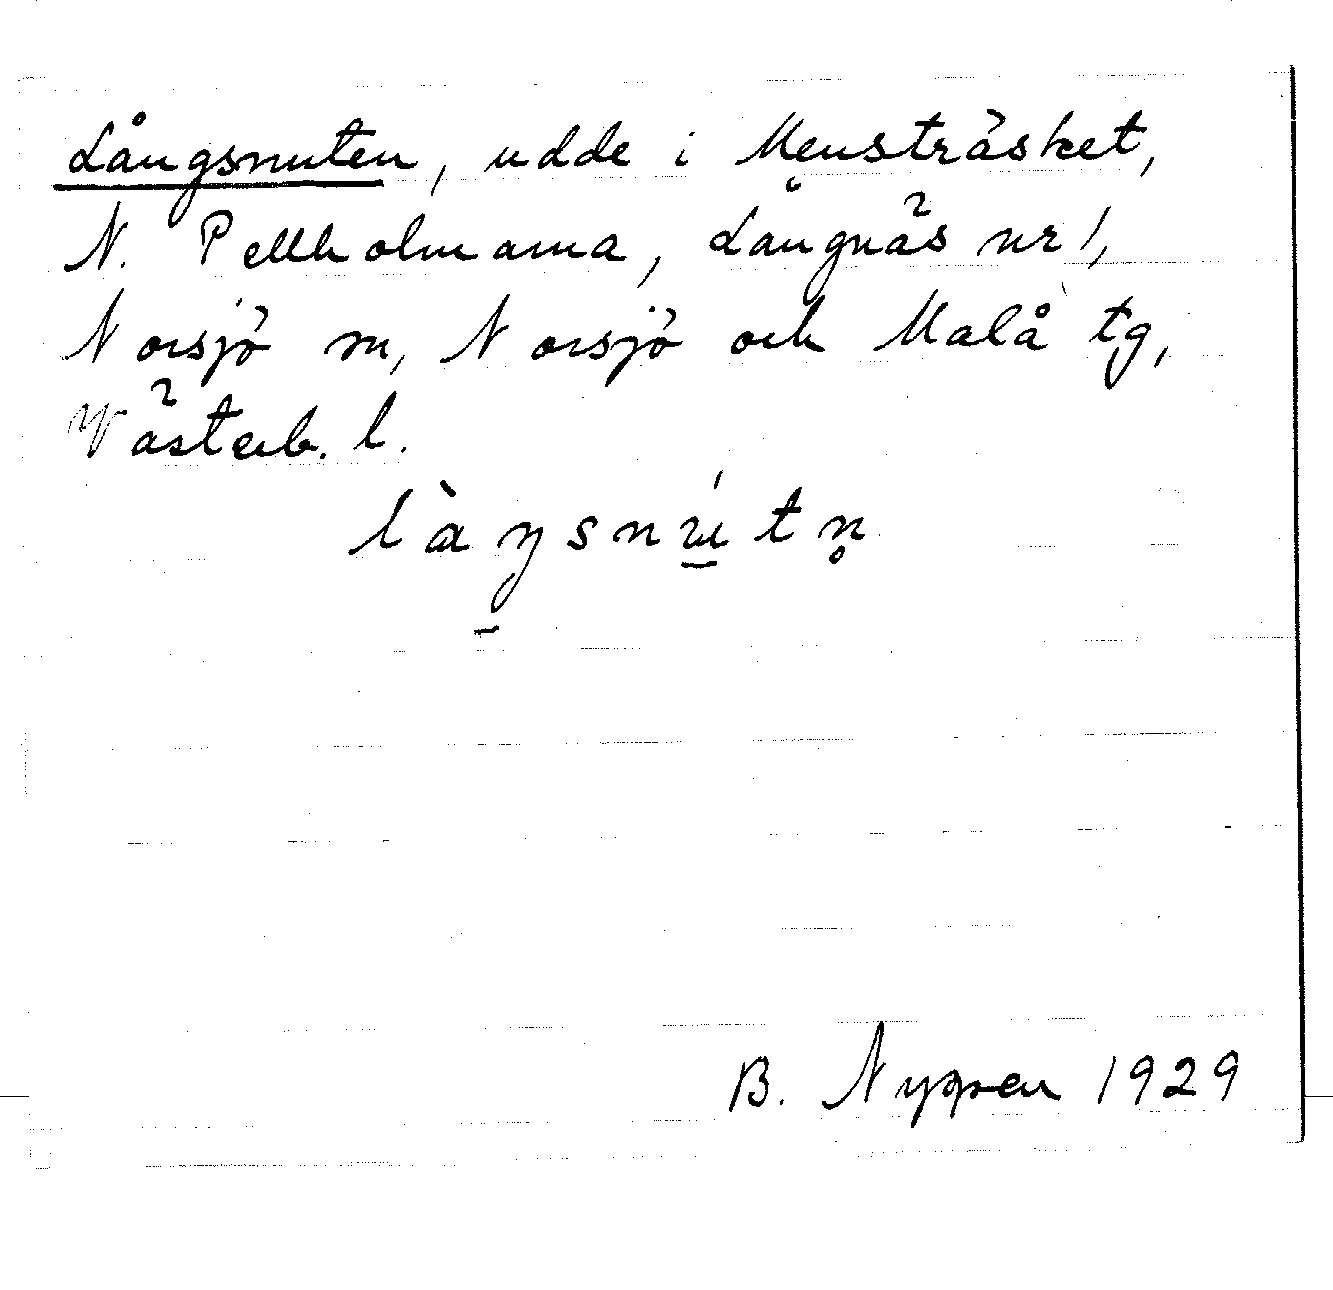 Långsnuten, udde i Mensträsket,
N. Pellholmarna, Långnäs nr 1,
Norsjö sn, Norsjö och Malå tg,
Västerb. l.
làŋsnú̱tn̥
B. Nygren 1929